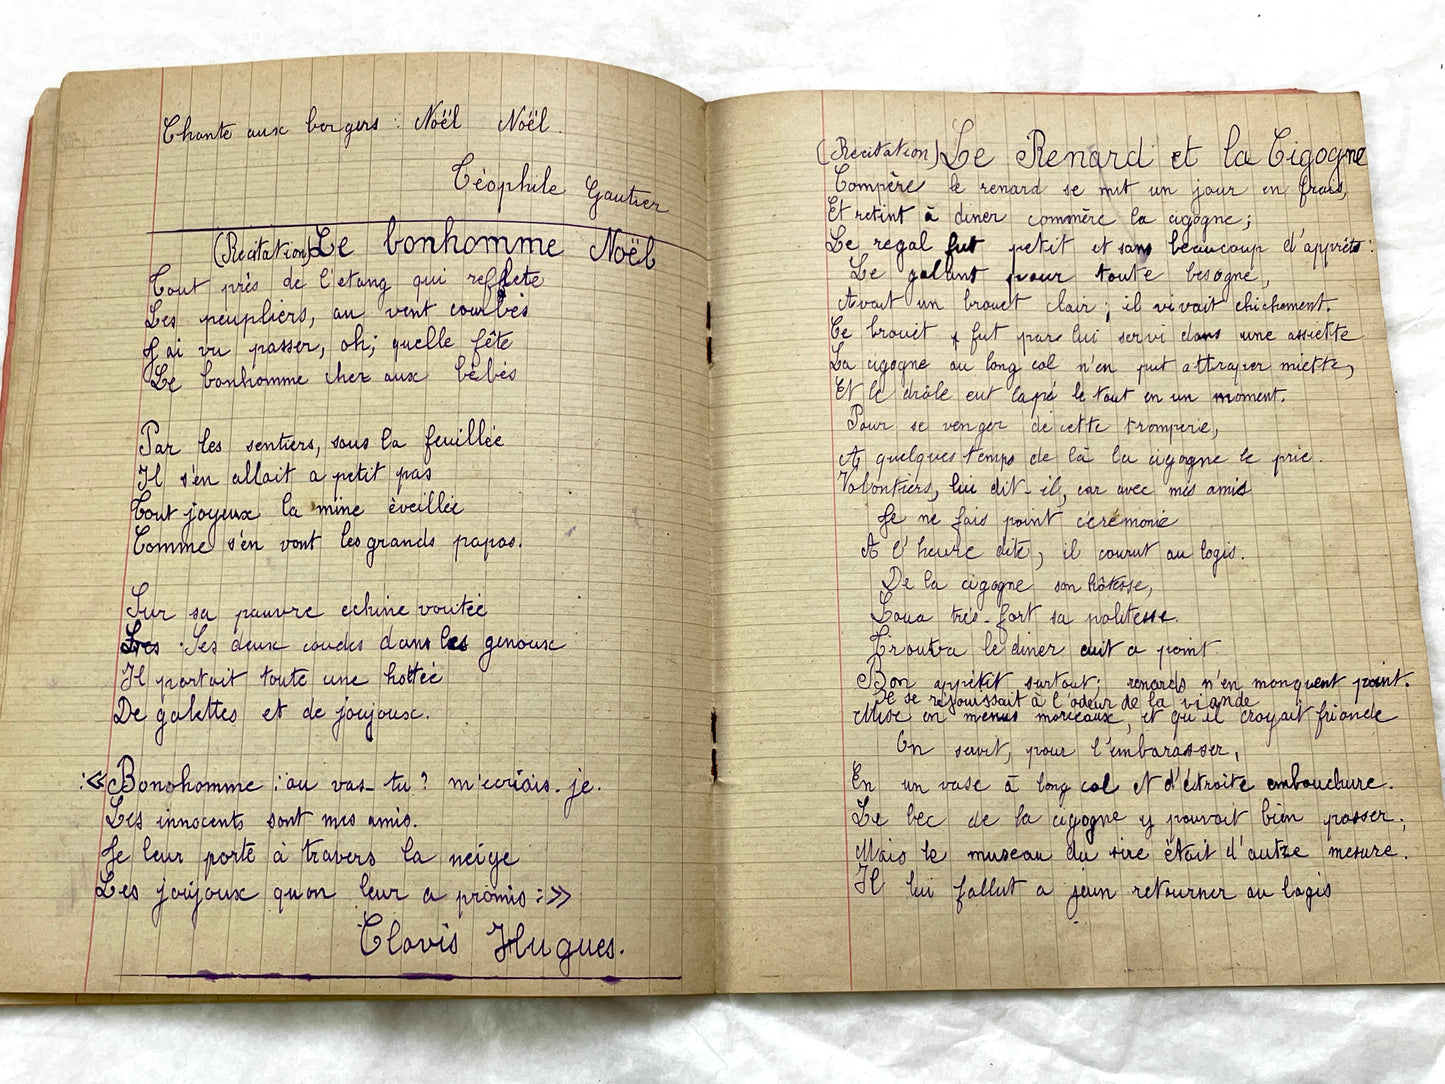 Chante aux bergers : Noël Noël.
Téophile Gautier
(Recitation) Le bonhomme Noël
Tout près de l'etang qui reflete
Les peupliers, au vent courbés
J'ai vu passer, oh; quelle fête
Le bonhomme cher aux bébés
Par les sentiers, sous la feuillée
Il s'en allait a petit pas
Tout joyeux la mine éveillée
Comme s'en vont les grands papas.
Sur sa pauvre echine voutée
Les Ses deux coudes dans les genoux
Il portait toute une hottée
De galettes et de joujoux.
:«Bonohomme : ou vas-tu? m'ecriais-je.
Les innocents sont mes amis.
Je leur porte à travers la neige
Les joujoux qu'on leur a promis :»
Clovis Hugues.
(Recitation) Le Renard et la Cigogne
Compère le renard se mit un jour en frais,
Et retint à diner commère la cigogne;
Le regal fut petit et sans beaucoup d'apprêts :
Le galant pour toute besogne,
Avait un brouet clair; il vivait chichement.
Ce brouet fut par lui servi dans une assiette
La cigogne au long col n'en put attraper miette,
Et le drôle eut lapé le tout en un moment.
Pour se venger de cette tromperie,
A quelques temps de là la cigogne le prie.
Volontiers, lui dit-il, car avec mes amis
Je ne fais point cérémonie
A l'heure dite, il courut au logis.
De la cigogne son hôtesse,
Loua très-fort sa politesse.
Trouva le diner cuit a point
Bon appétit surtout; renards n'en manquent point.
Il se réjouissait à l'odeur de la viande
Mise en menus morceaux, et qu'il croyait friande
On servit, pour l'embarasser,
En un vase à long col et d'étroite embouchure.
Le bec de la cigogne y pouvait bien passer;
Mais le museau du sire était d'autre mesure.
Il lui fallut a jeun retourner au logis